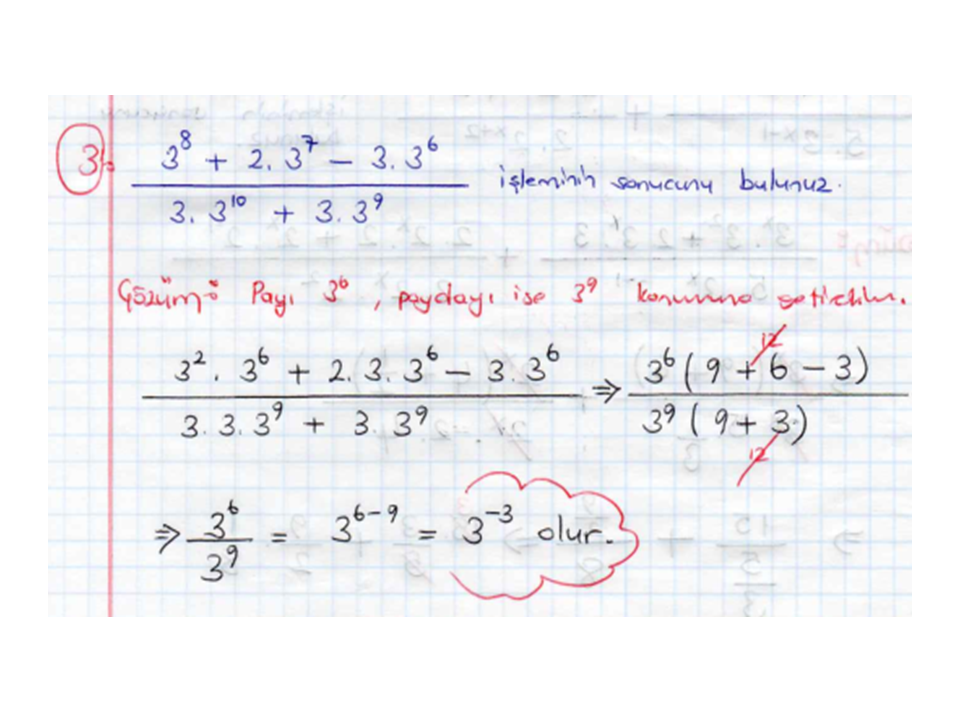 3. 3⁸ + 2. 3⁷ − 3. 3⁶ / 3. 3¹⁰ + 3. 3⁹ işleminin sonucunu bulunuz.
Çözüm: Payı 3⁶, paydayı ise 3⁹ konumuna getirelim.
3². 3⁶ + 2. 3. 3⁶ − 3. 3⁶ / 3. 3. 3⁹ + 3. 3⁹ ⇒ 3⁶ ( 9 + 6 − 3) / 3⁹ ( 9 + 3) 12 12
⇒ 3⁶ / 3⁹ = 3⁶⁻⁹ = 3⁻³ olur.